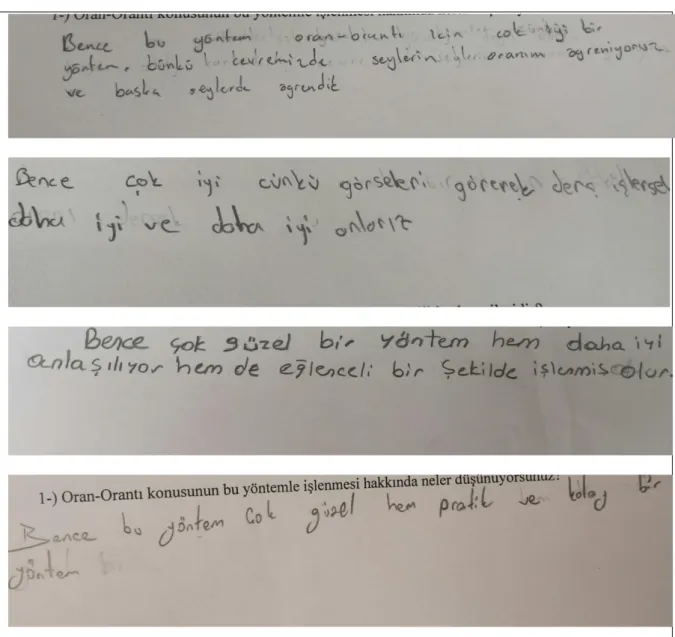 1-) Oran-Orantı konusunun bu yöntemle işlenmesi hakkında
Bence bu yöntemi oran-orantı için çok iyi bir
yöntem, bünkü çevremizde şeylerin oranını ögreniyoruz
ve başka seylerde ögrendik
Bence çok iyi cünkü görseleri görerek ders işlersek
daha iyi ve daha iyi onlarız
Bence çok güzel bir yöntem hem daha iyi
anlaşılıyor hem de eğlenceli bir şekilde işlenmis olur.
1-) Oran-Orantı konusunun bu yöntemle işlenmesi hakkında neler düşünüyorsunuz?
Bence bu yöntem çok güzel hem pratik ve kolay bir
yöntem